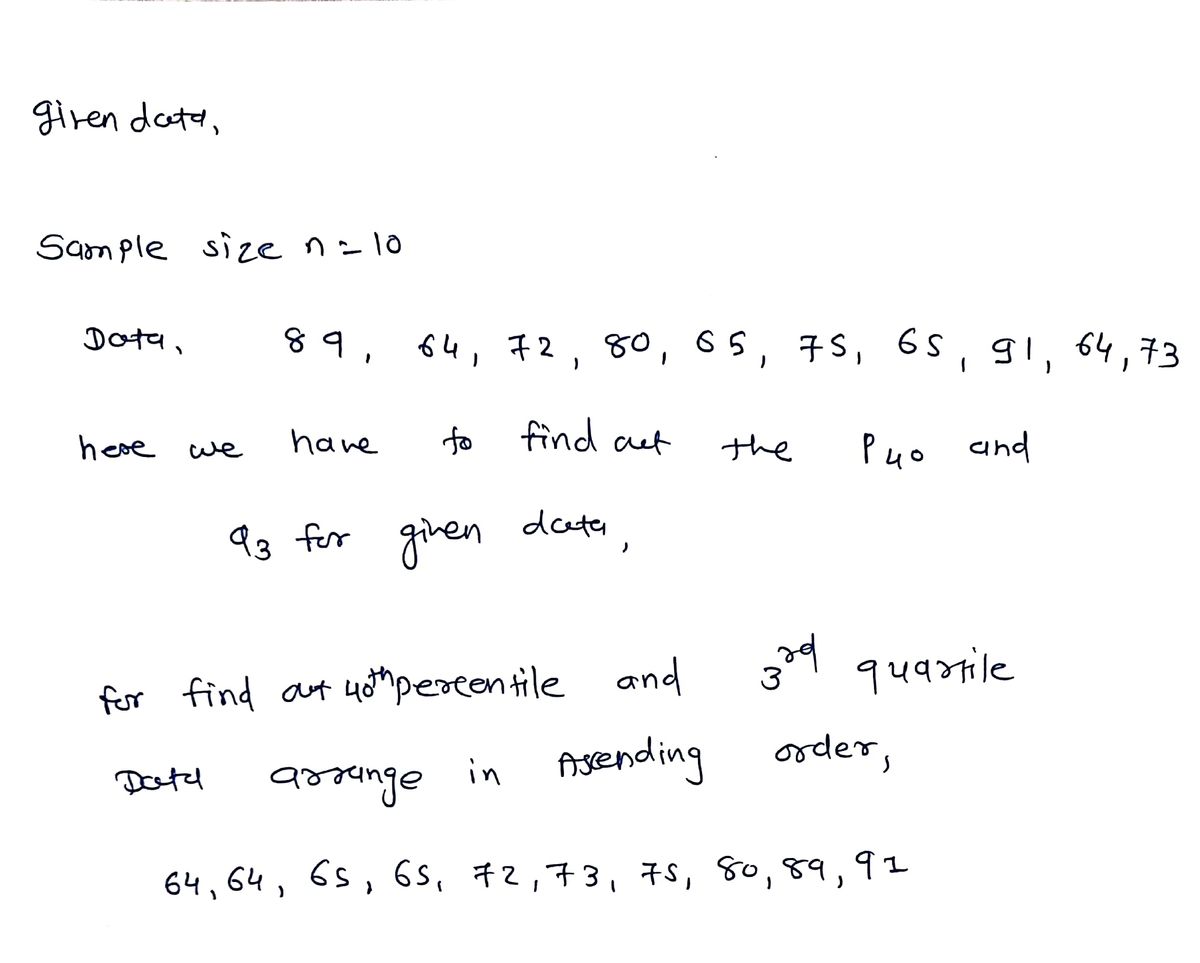 given data,
Sample size n = 10
Data, 89, 64, 72, 80, 65, 75, 65, 91, 64, 73
here we have to find out the P40 and
q3 for given data,
for find out 40th percentile and 3rd quartile
Data arrange in Ascending order,
64, 64, 65, 65, 72, 73, 75, 80, 89, 91